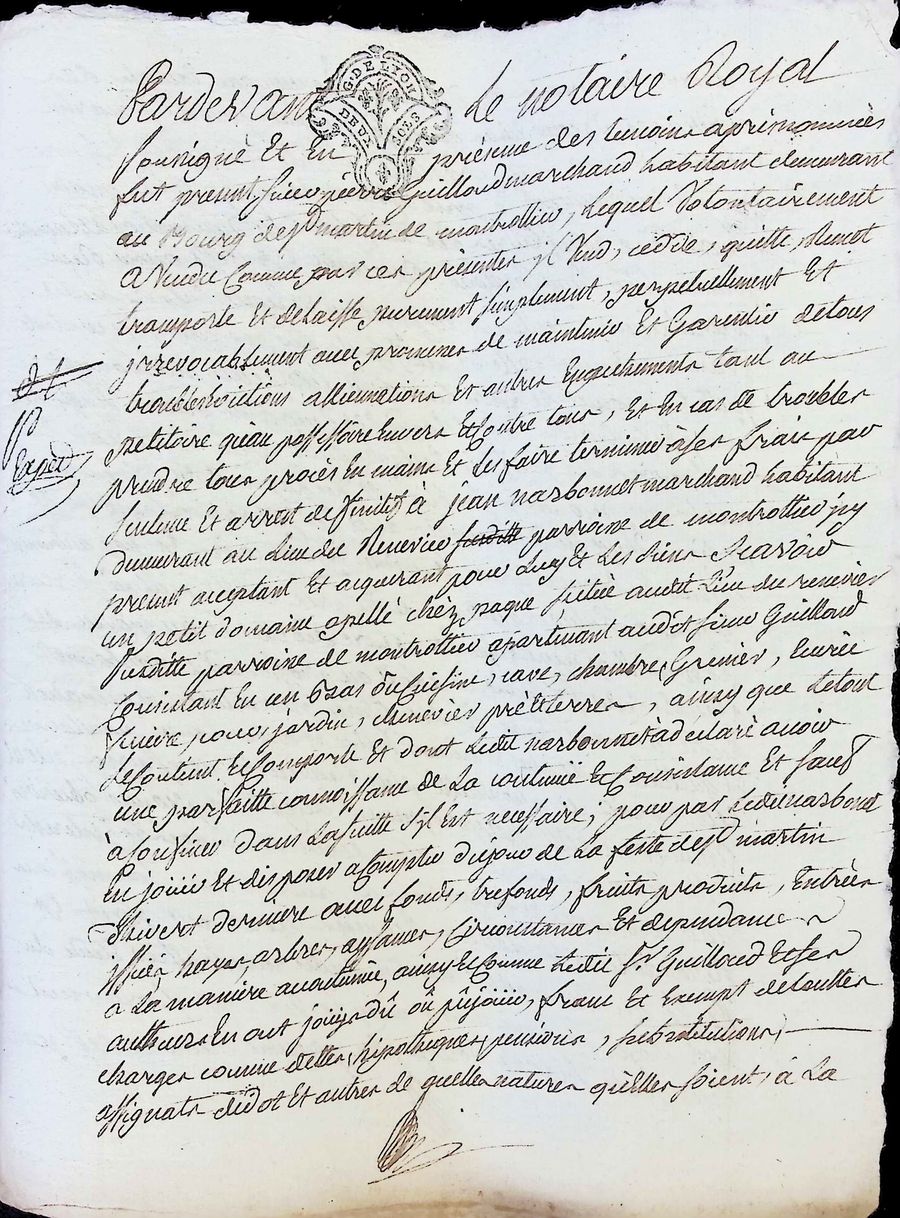 G. DE LYON
DEUX SOLS
Pardevant le notaire Royal
soussigné Et En présence des temoins apresnommés
fut present sieur pierre Guilloud marchand habitant demeurant
au Bourg de st martin de montrottier, lequel Volontairement
a Vendu Comme par ces presentes il Vend, cedde, quitte, Remet
transporte Et delaisse purement simplement, perpetuellement Et
jrrevocablement avec promesses de maintenir Et Garentir de tous
troubles Evictions allienations Et autres Empechements tant au
petitoire qu'au possessoire Envers Et Contre tous, Et En cas de troubles
prendre tous procès En mains Et les faire terminer à ses frais par
sentence Et arrest deffinitif à jean narbonnet marchand habitant
demeurant au lieu du Renevier susditte parroisse de montrottier jcy
present acceptant Et acquerant pour Luy Et Les siens scavoir
un petit domaine apellé chéz paque scitué audit Lieu du renevier
susditte parroisse de montrottier apartenant audit sieur Guilloud
Consistant En un bas ou Cuisine, cave, chambre, Grenier, Ecurie
, cour, jardin, chenevier prés terres, ainsy que le tout
se Contient Et Comporte Et dont Ledit narbonnet a déclaré avoir
une parfaitte connoissance de La contenüe Et Consistance Et sauf
à Confiner dans La suitte s'jl Est necessaire; pour par Ledit narbonnet
En joüir Et disposer a Compter du jour de La feste de st martin
d'hivert derniere avec fonds, trefonds, fruits produits, Entrées
jssües, hayes, arbres, aysances, Circonstances Et dependances
a La maniere accoutumée, ainsy Et Comme Ledit sr. Guilloud Et ses
autheurs En ont joüis dû où pû joüir, franc Et Exempt de touttes
charges comme dettes, hipotheques, pensions, substitutions,
assignats didot Et autres de quelles natures qu'elles soient, à La
Expéd